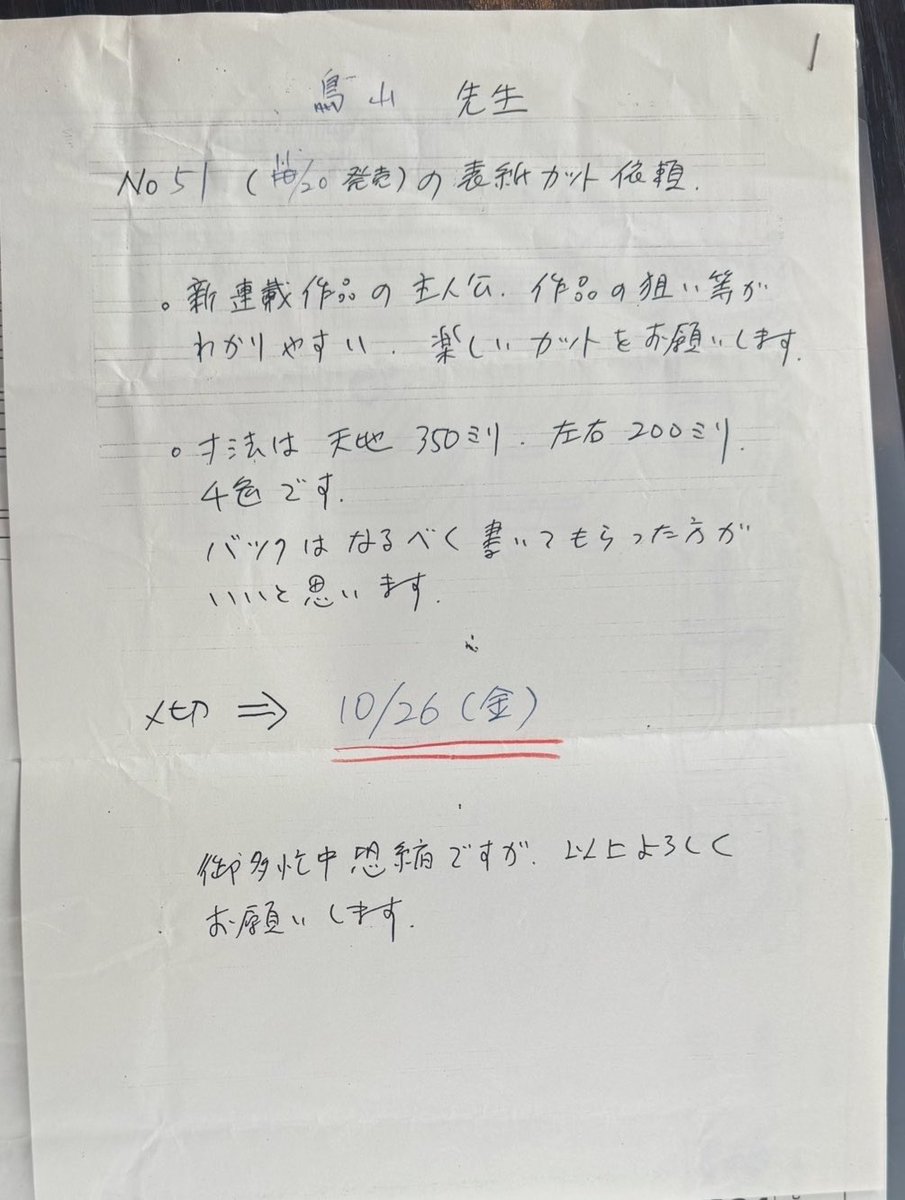 1
鳥山 先生
No 51 (/20 発売)の表紙カット依頼.
。新連載作品の主人公. 作品の狙い等が
わかりやすい. 楽しいカットをお願いします.
。寸法は天地 350ミリ. 左右 200ミリ.
4色です.
バックはなるべく書いてもらった方が
いいと思います.
〆切 ⇒ 10/26 (金)
御多忙中恐縮ですが. 以上よろしく
お願いします.